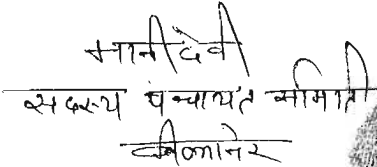 मानी देवी
सदस्य पंचायत समिति
बीकानेर